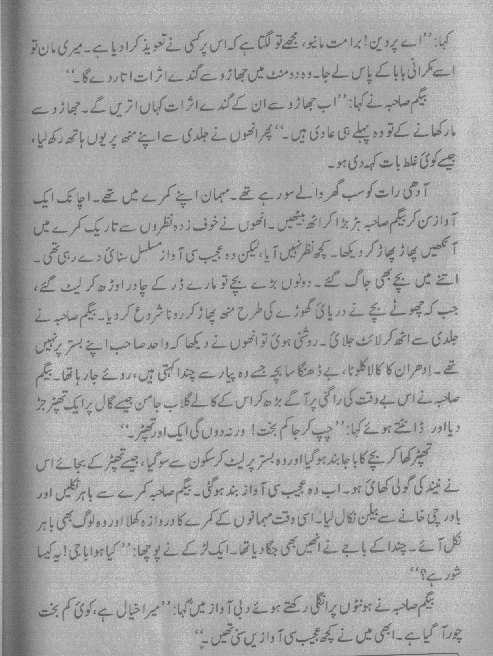 کہا: ’’اے پروین! برا مت مانیو، مجھے تو لگتا ہے کہ اس پر کسی نے تعویذ کرا دیا ہے۔ میری مان تو
اسے مکرانی بابا کے پاس لے جا۔ وہ دو منٹ میں جھاڑو سے گندے اثرات اتار دے گا۔‘‘
بیگم صاحبہ نے کہا: ’’اب جھاڑو سے ان کے گندے اثرات کہاں اتریں گے۔ جھاڑو سے
مار کھانے کے تو وہ پہلے ہی عادی ہیں۔‘‘ پھر انھوں نے جلدی سے اپنے منھ پر یوں ہاتھ رکھ لیا،
جیسے کوئی غلط بات کہہ دی ہو۔
آدھی رات کو سب گھر والے سو رہے تھے۔ مہمان اپنے کمرے میں تھے۔ اچانک ایک
آواز سن کر بیگم صاحبہ ہڑبڑا کر اٹھ بیٹھیں۔ انھوں نے خوف زدہ نظروں سے تاریک کمرے میں
آنکھیں پھاڑ پھاڑ کر دیکھا۔ کچھ نظر نہیں آیا، لیکن وہ عجیب سی آواز مسلسل سنائی دے رہی تھی۔
اتنے میں بچے بھی جاگ گئے۔ دونوں بڑے بچے تو مارے ڈر کے چادر اوڑھ کر لیٹ گئے،
جب کہ چھوٹے بچے نے دریائی گھوڑے کی طرح منھ پھاڑ کر رونا شروع کر دیا۔ بیگم صاحبہ نے
جلدی سے اٹھ کر لائٹ جلائی۔ روشنی ہوئی تو انھوں نے دیکھا کہ واحد صاحب اپنے بستر پر نہیں
تھے۔ ادھر ان کا کالا کلوٹا، بے ڈھنگا سا بچہ جسے وہ پیار سے چندا کہتی ہیں، روئے جا رہا تھا۔ بیگم
صاحبہ نے اس بے وقت کی راگنی پر آگے بڑھ کر اس کے کالے گلاب جامن جیسے گال پر ایک تھپڑ جڑ
دیا اور ڈانٹتے ہوئے کہا: ’’چپ کر جا کم بخت! ورنہ دوں گی ایک اور تھپڑ۔‘‘
تھپڑ کھا کر بچے کا باجا بند ہو گیا اور وہ بستر پر لیٹ کر سکون سے سو گیا، جیسے تھپڑ کے بجائے اس
نے نیند کی گولی کھائی ہو۔ اب وہ عجیب سی آواز بند ہو گئی۔ بیگم صاحبہ کمرے سے باہر نکلیں اور
باورچی خانے سے بیلن نکال لیا۔ اسی وقت مہمانوں کے کمرے کا دروازہ کھلا اور وہ لوگ بھی باہر
نکل آئے۔ چندا کے باجے نے انھیں بھی جگا دیا تھا۔ ایک لڑکے نے پوچھا: ’’کیا ہوا باجی! یہ کیسا
شور ہے؟‘‘
بیگم صاحبہ نے ہونٹوں پر انگلی رکھتے ہوئے دبی آواز میں کہا: ’’میرا خیال ہے، کوئی کم بخت
چور آ گیا ہے۔ ابھی میں نے کچھ عجیب سی آوازیں سنی تھیں۔‘‘